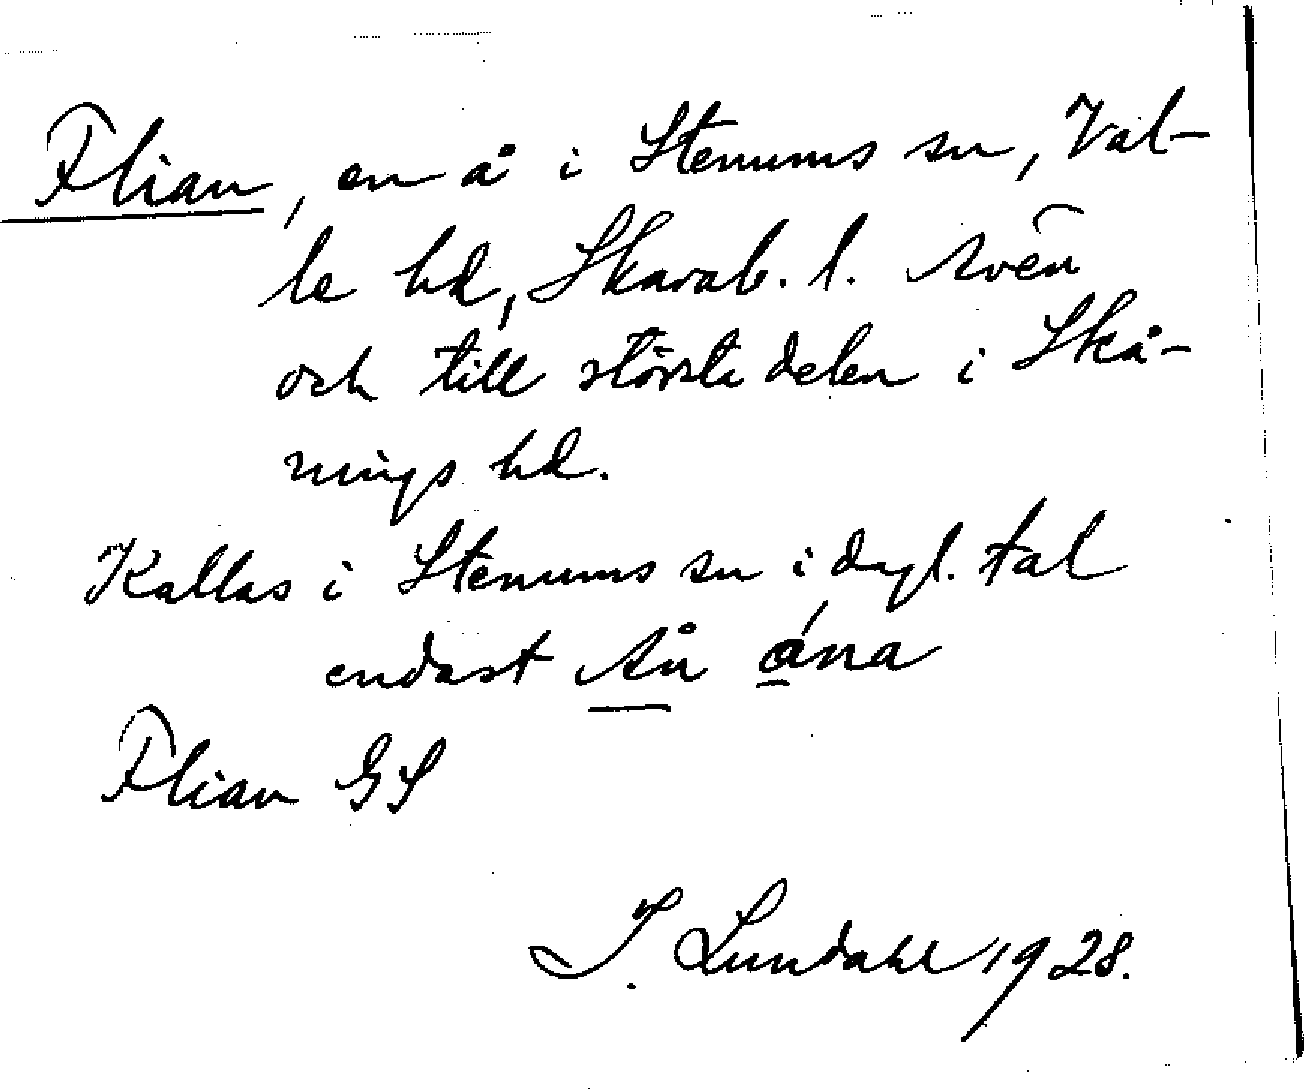 Flian, en å i Stenums sn, Val-
le hd, Skarab. l. Även
och till största delen i Skå-
nings hd.
Kallas i Stenums sn i dagl. tal
endast Ån ána
Flian GS
I. Lundahl 1928.